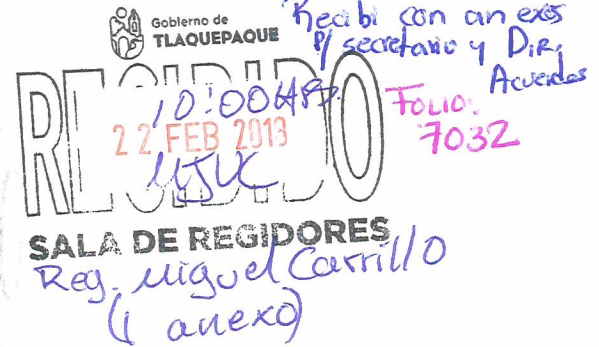 Gobierno de
TLAQUEPAQUE
Recibi con anexos
P/ secretario y Dir.
Acuerdos
RECIBIDO
10:00 HRS.
22 FEB 2019
MJVC
Folio:
7032
SALA DE REGIDORES
Reg. Miguel Carrillo
(1 anexo)